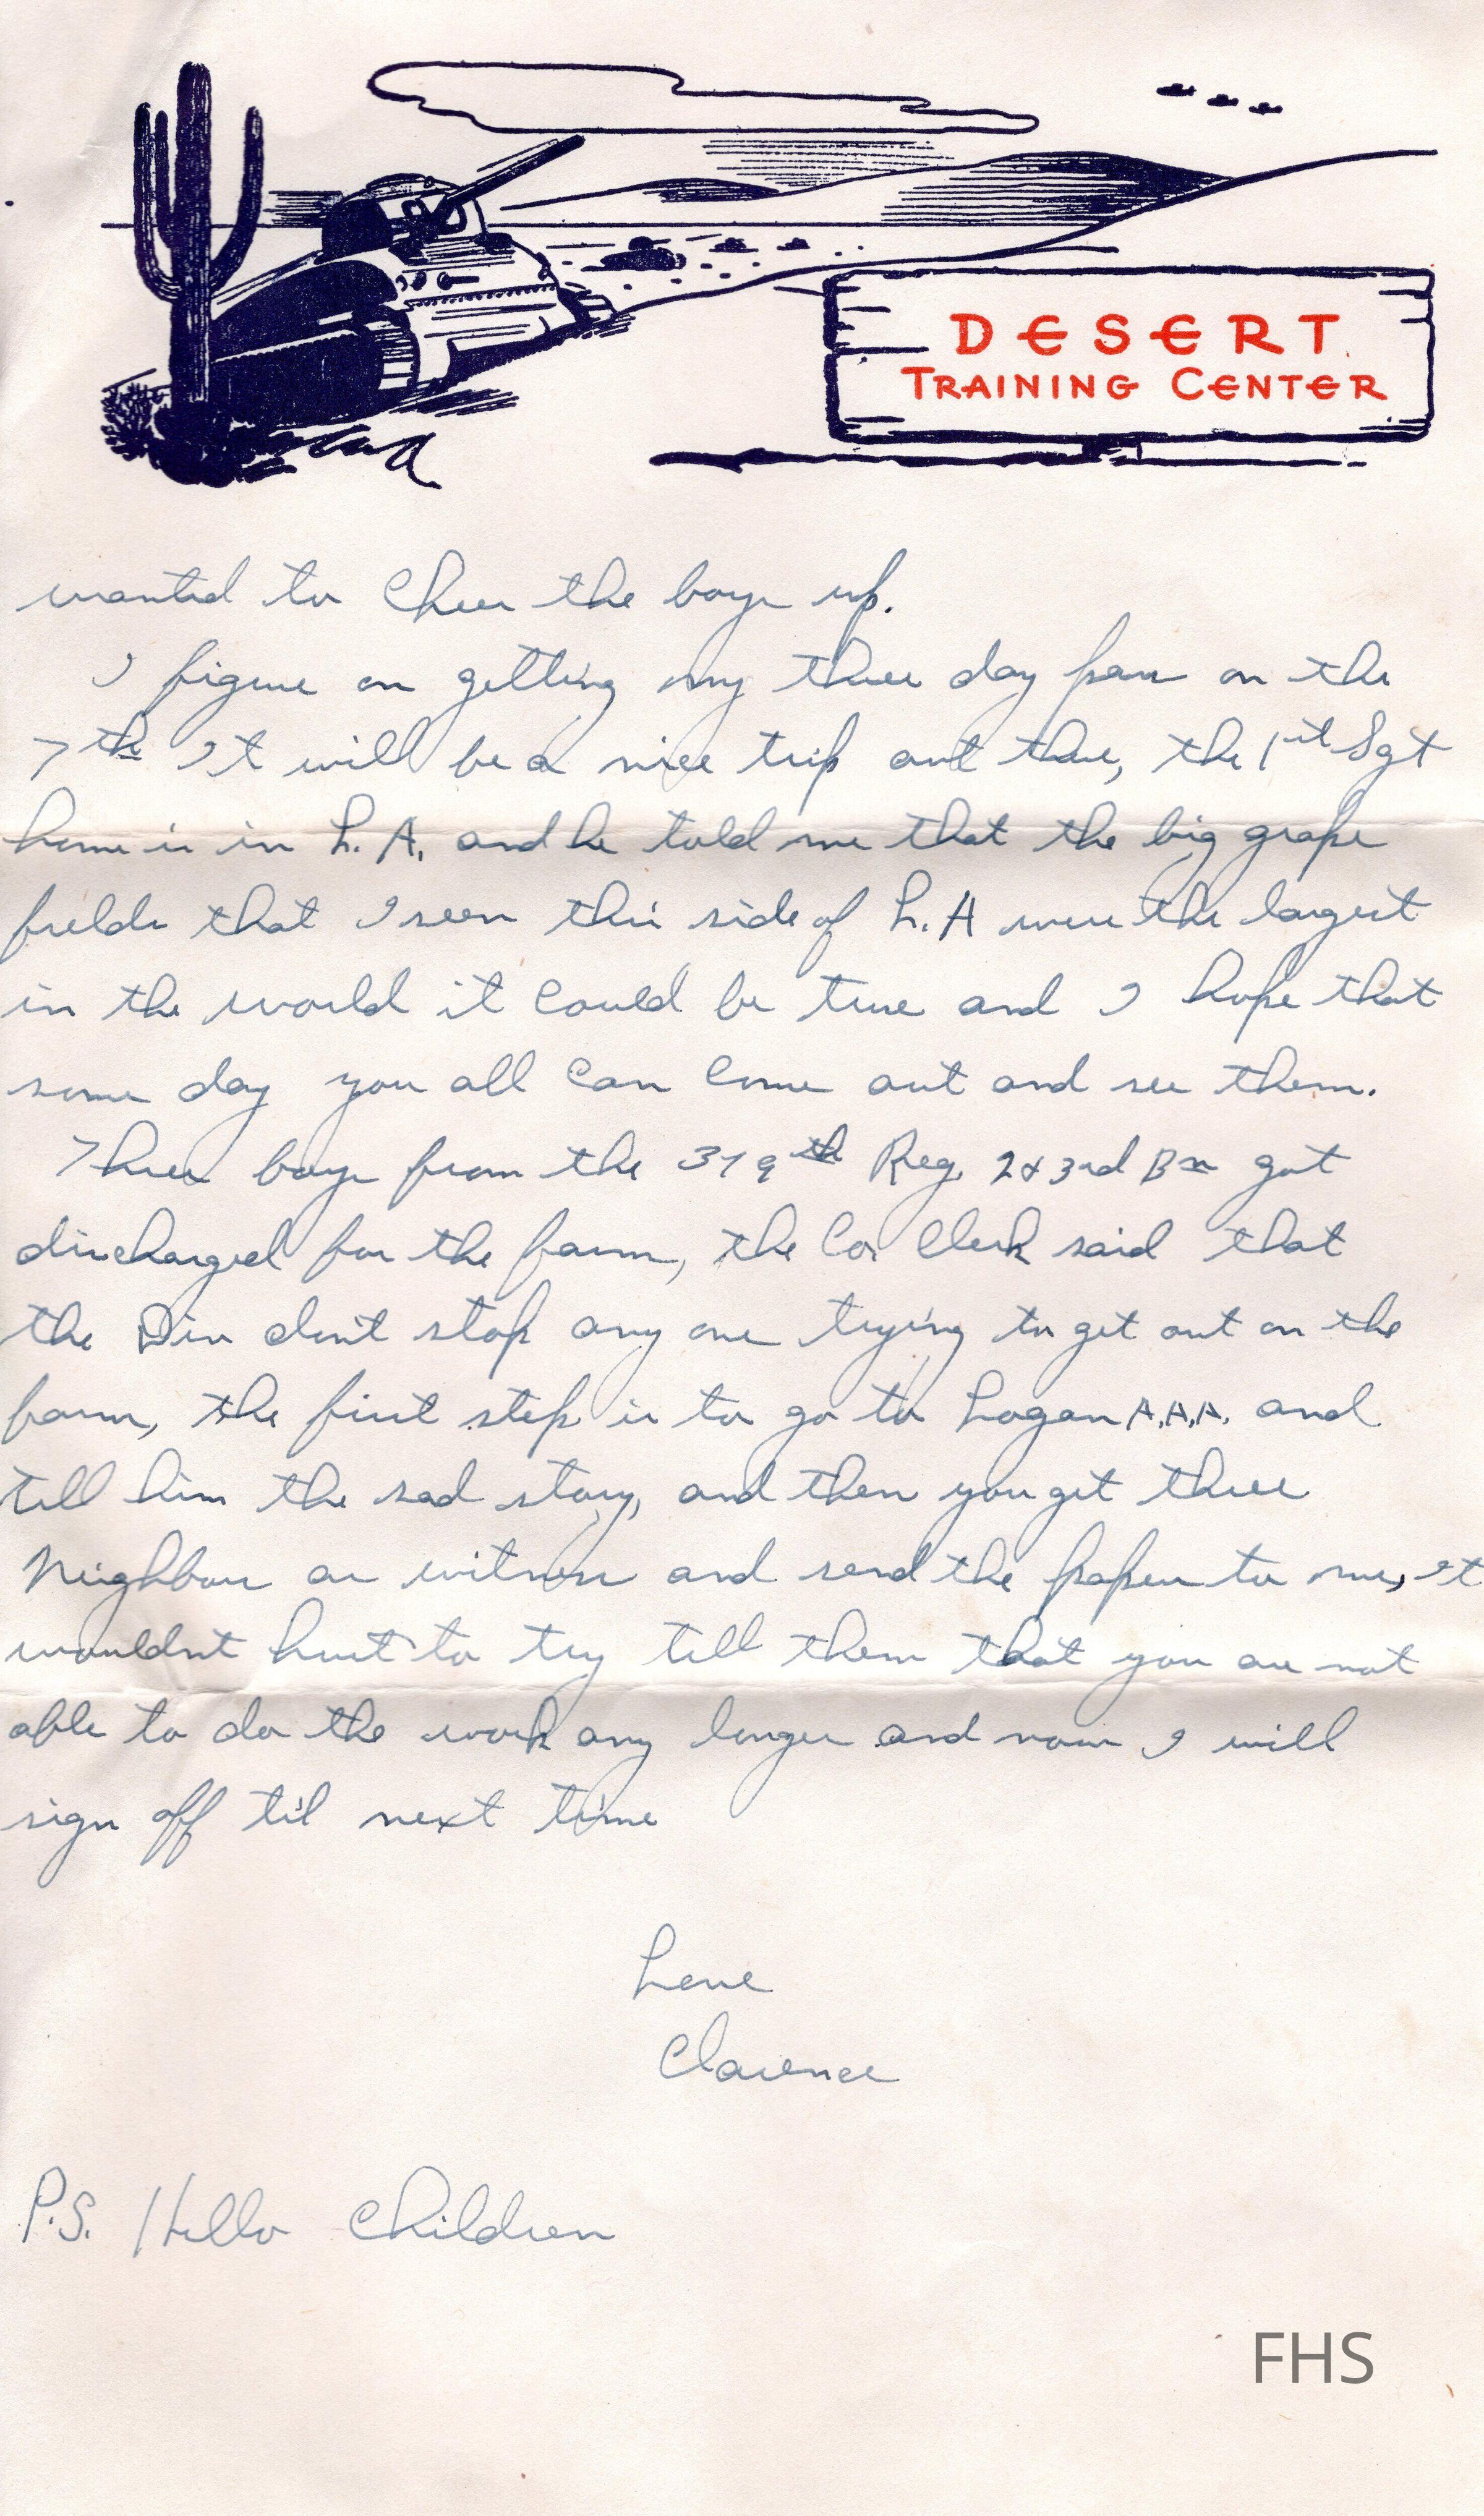 DESERT
TRAINING CENTER
wanted to cheer the boys up.
I figure on getting my three day pass on the
7th It will be a nice trip out there, the 1st Sgt
home is in L.A. and he told me that the big grape
fields that I seen this side of L.A were the largest
in the world it could be true and I hope that
some day you all can come out and see them.
Three boys from the 319th Reg. 2 & 3rd Bn got
discharged for the farm, the Co. Clerk said that
the Div dont stop any one trying to get out on the
farm, the first step is to go to Logan A.A.A. and
tell him the sad story, and then you get three
Neighbors as witness and send the papers to me, It
wouldnt hurt to try tell them that you are not
able to do the work any longer and now I will
sign off til next time
Love
Clarence
P.S. Hello Children
FHS